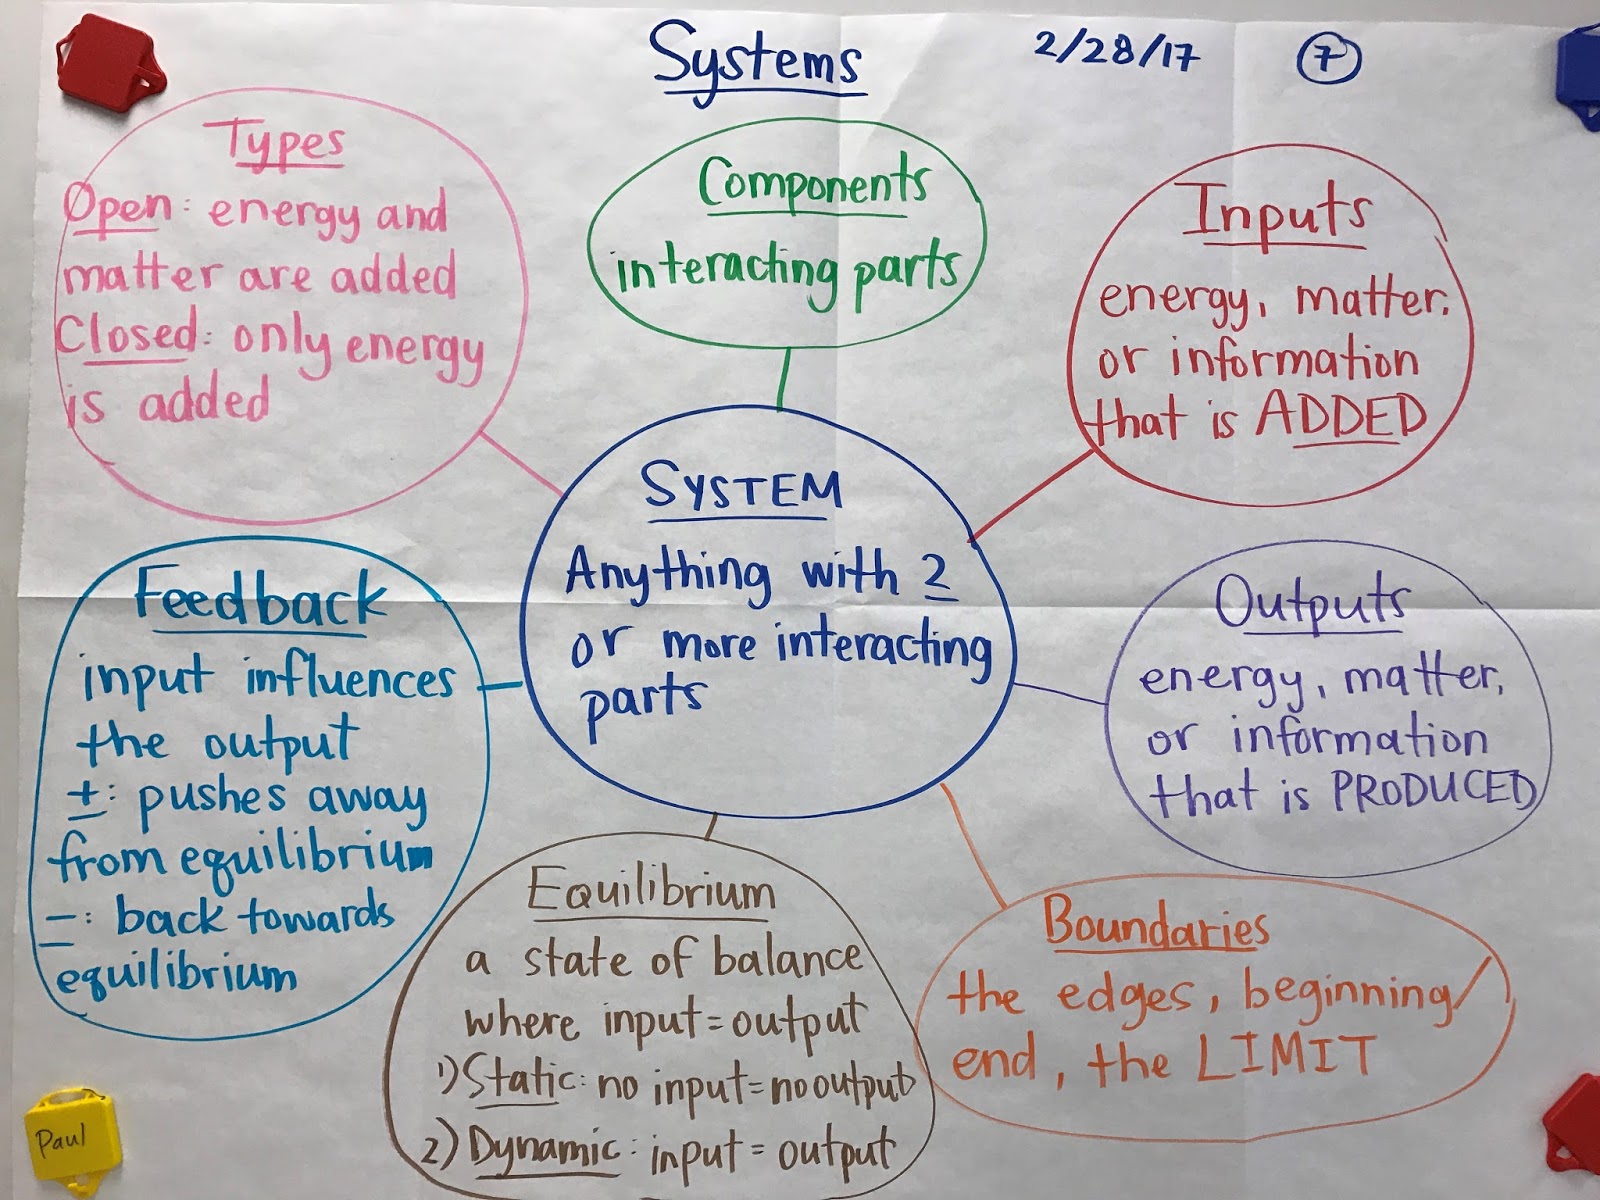 Systems
2/28/17
7
Types
Open: energy and
matter are added
Closed: only energy
is added
Components
interacting parts
Inputs
energy, matter,
or information
that is ADDED
SYSTEM
Anything with 2
or more interacting
parts
Feedback
input influences
the output
+: pushes away
from equilibrium
-: back towards
equilibrium
Outputs
energy, matter,
or information
that is PRODUCED
Equilibrium
a state of balance
where input = output
1) Static: no input = no output
2) Dynamic: input = output
Boundaries
the edges, beginning/
end, the LIMIT
Paul